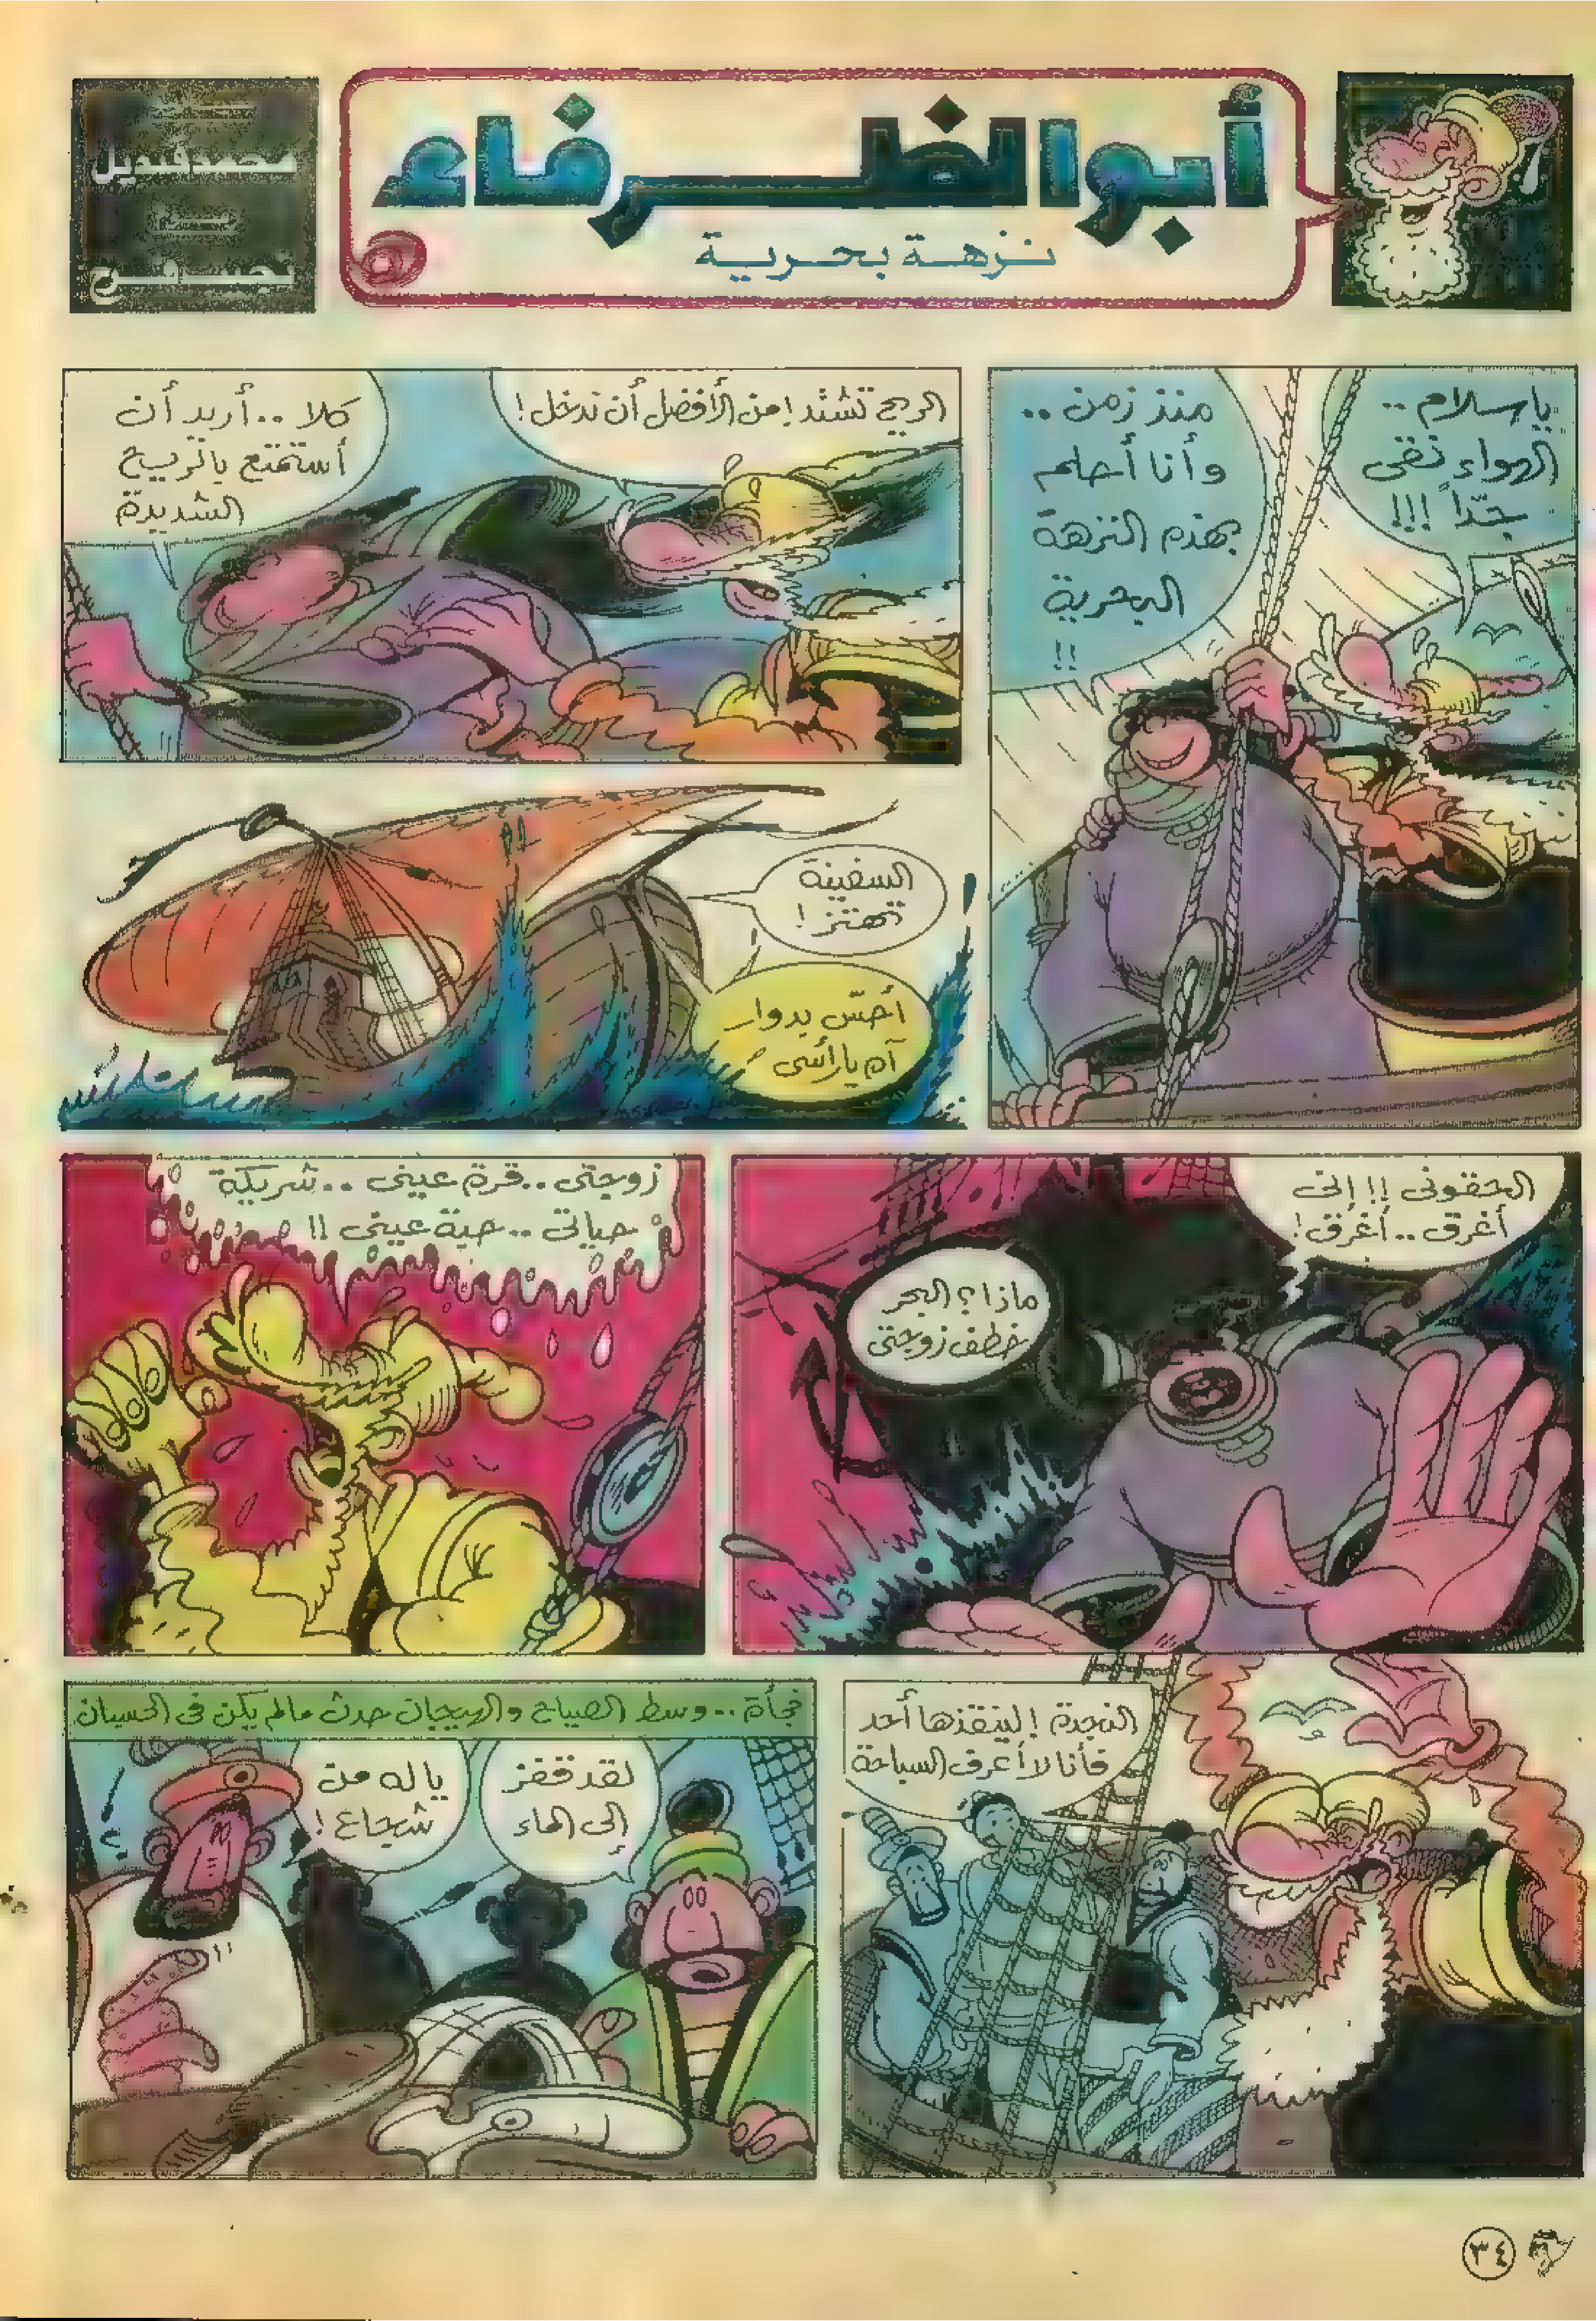 أبو الظرفاء
نزهة بحرية
محمد قنديل
يا سلام ..
الهواء نقى
جدّاً !!!
منذ زمن ..
وأنا أحلم
بهذه النزهة
البحرية
!!
الريح تشتد ! من الأفضل أن ندخل !
كلا .. أريد أن
أستمتع بالريح
الشديدة
السفينة
تهتز !
أحسّ بدوار
آه يا رأسى
الحقونى !! إنى
أغرق .. أغرق !
ماذا ؟ البحر
خطف زوجتى
زوجتى .. قرة عينى .. شريكة
حياتى .. حبة عينى !!
النجدة ! لينقذها أحد
فأنا لا أعرف السباحة
فجأة .. وسط الصياح والهيجان حدث مالم يكن فى الحسبان
لقد قفز
إلى الماء
ياله من
شجاع !
؟!
٣٤